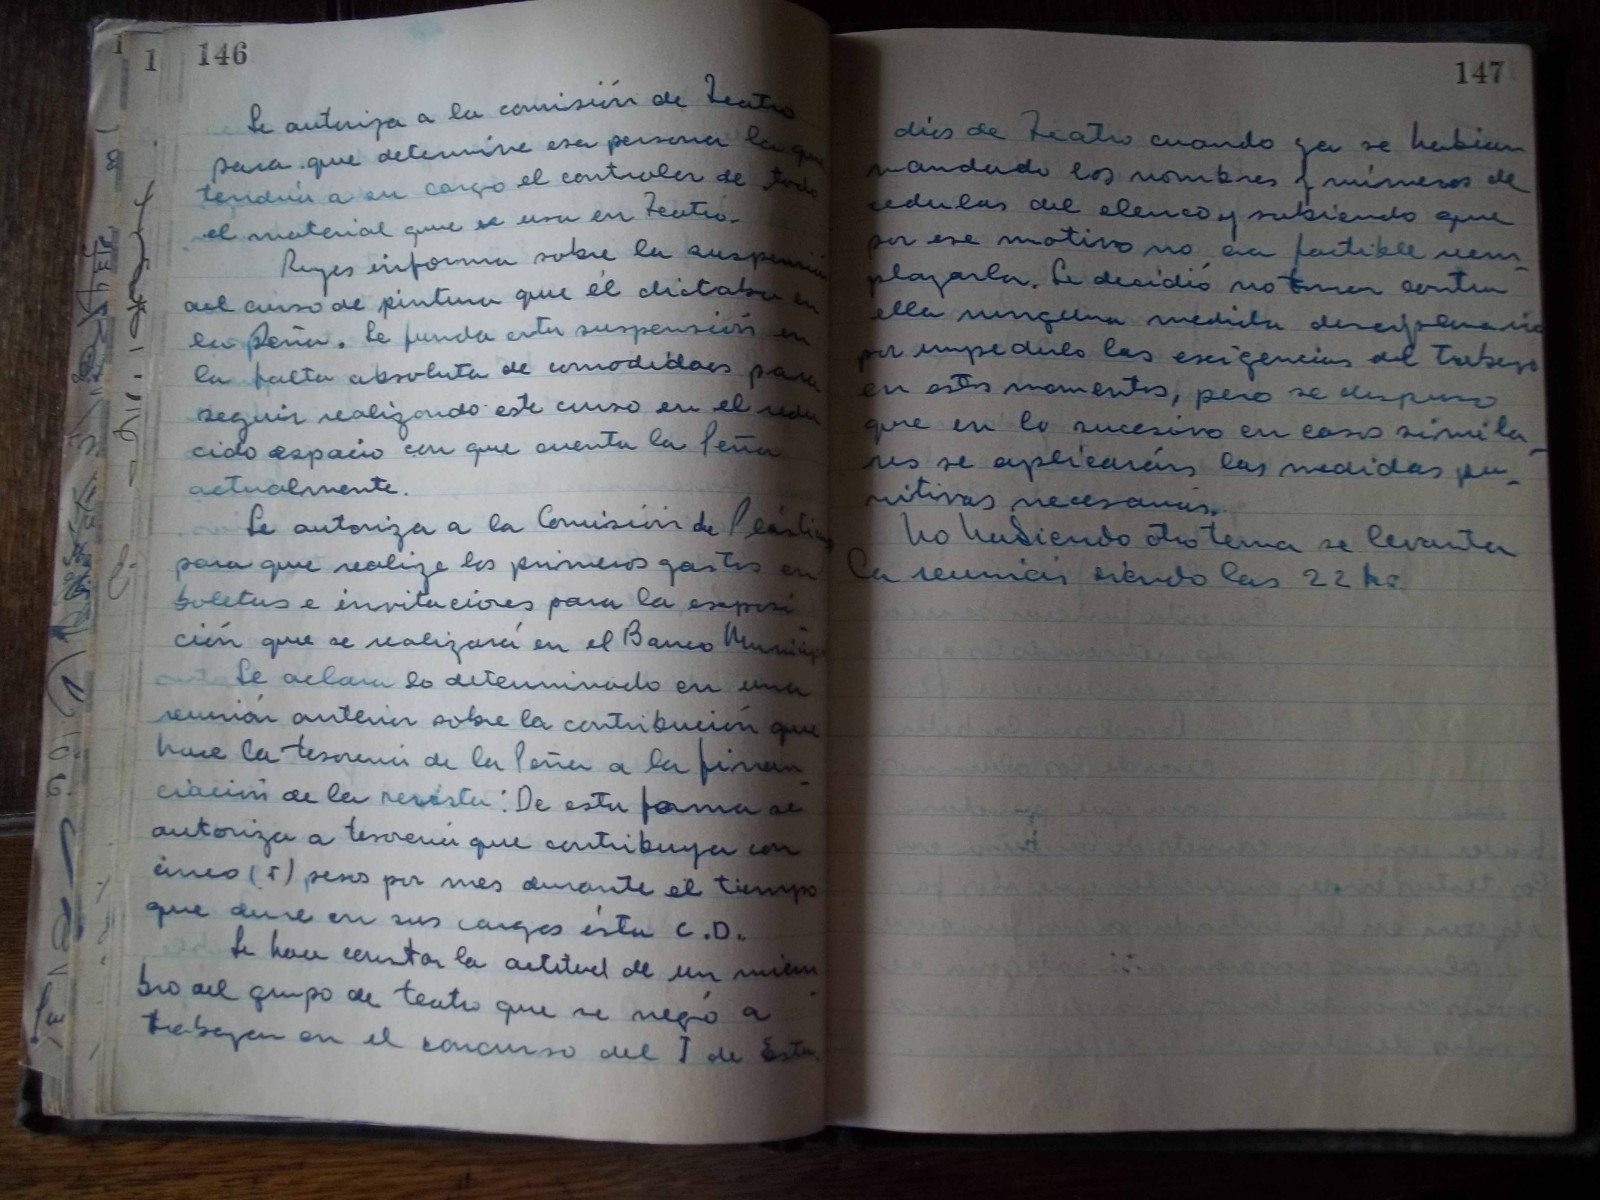 146
Se autoriza a la comisión de Teatro
para que determine esa persona la que
tendría a su cargo el controlar de todo
el material que se usa en Teatro.
Reyes informa sobre la suspensión
del curso de pintura que él dictaba en
la Peña. Se funda esta suspensión en
la falta absoluta de comodidaes para
seguir realizando este curso en el redu
cido espacio con que cuenta la Peña
actualmente.
Se autoriza a la Comisión de Plástica
para que realize los primeros gastos en
boletas e invitaciones para la exposi
ción que se realizará en el Banco Municip
Se aclara lo determinado en una
reunión anterior sobre la contribución que
hace la tesorería de la Peña a la finan-
ciación de la revista: De esta forma se
autoriza a tesorería que contribuya con
cinco (5) pesos por mes durante el tiempo
que dure en sus cargos ésta C.D.
Se hace constar la actitud de un miem
bro del grupo de teatro que se negó a
trabajar en el concurso del I de Estu.
147
dios de Teatro cuando ya se habian
mandado los nombres y números de
cedulas del elenco y sabiendo que
por ese motivo no era factible reem-
plazarla. Se decidió no tomar contra
ella ninguna medida disciplinaria
por impedirlo las exigencias del trabajo
en estos momentos, pero se dispuso
que en lo sucesivo en casos simila-
res se aplicarán las medidas pu-
nitivas necesarias.
No habiendo otro tema se levanta
la reunión siendo las 22 hs